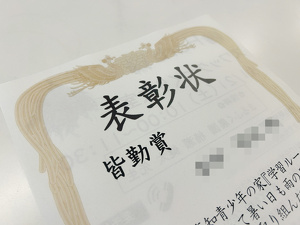 表彰状
皆勤賞
知青少年の家『学習ルー
て暑い日も雨の
り組ん